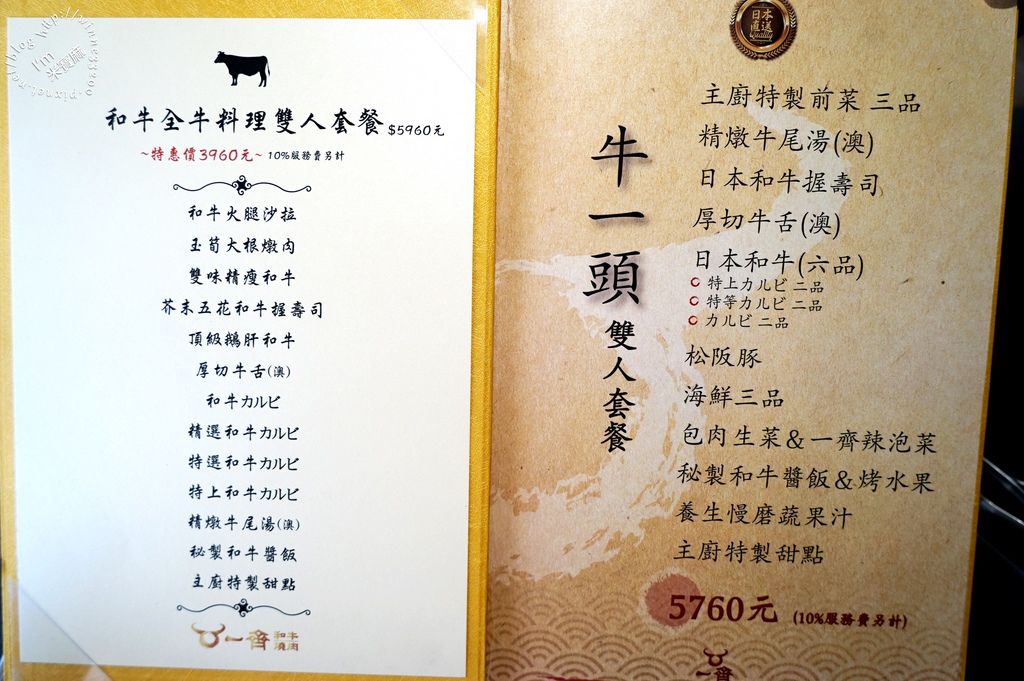 http://winnes1200.pixnet.net/blog
I'm
米寶麻
和牛全牛料理雙人套餐 $5960元
~特惠價3960元~ 10%服務費另計
和牛火腿沙拉
玉筍大根燉肉
雙味精瘦和牛
芥末五花和牛握壽司
頂級鵝肝和牛
厚切牛舌(澳)
和牛カルビ
精選和牛カルビ
特選和牛カルビ
特上和牛カルビ
精燉牛尾湯(澳)
秘製和牛醬飯
主廚特製甜點
一齊 和牛燒肉
日本
直送
Quality
牛一頭 雙人套餐
主廚特製前菜 三品
精燉牛尾湯(澳)
日本和牛握壽司
厚切牛舌(澳)
日本和牛(六品)
特上カルビ 二品
特等カルビ 二品
カルビ 二品
松阪豚
海鮮三品
包肉生菜&一齊辣泡菜
秘製和牛醬飯&烤水果
養生慢磨蔬果汁
主廚特製甜點
5760元 (10%服務費另計)
一齊